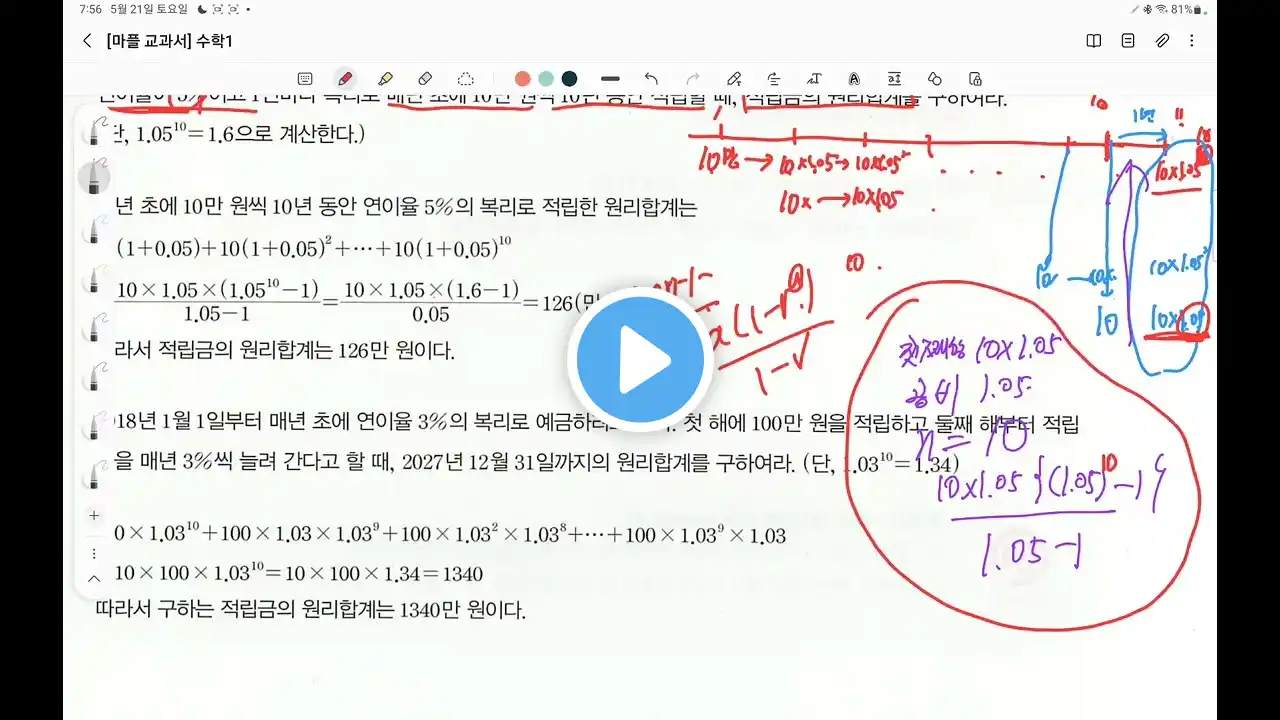 7:56 5월 21일 토요일
81%
[마플 교과서] 수학1
매년 초에 10만 원씩 10년 동안 적립할 때, 적립금의 원리합계를 구하여라.
단, 1.05¹⁰=1.6으로 계산한다.)
년 초에 10만 원씩 10년 동안 연이율 5%의 복리로 적립한 원리합계는
(1+0.05)+10(1+0.05)²+⋯+10(1+0.05)¹⁰
10×1.05×(1.05¹⁰−1)/1.05−1=10×1.05×(1.6−1)/0.05=126(만
라서 적립금의 원리합계는 126만 원이다.
18년 1월 1일부터 매년 초에 연이율 3%의 복리로 예금하려 첫 해에 100만 원을 적립하고 둘째 해부터 적립
을 매년 3%씩 늘려 간다고 할 때, 2027년 12월 31일까지의 원리합계를 구하여라. (단, 1.03¹⁰=1.34)
0×1.03¹⁰+100×1.03×1.03⁹+100×1.03²×1.03⁸+⋯+100×1.03⁹×1.03
10×100×1.03¹⁰=10×100×1.34=1340
따라서 구하는 적립금의 원리합계는 1340만 원이다.
10
1년
10만→10×1.05→10×1.05²
10×→10×1.05
10×1.05
10×1.05²
10
10
10.
1−r
첫째항 10×1.05
공비 1.05
n=10
10×1.05{(1.05)¹⁰−1}
1.05−1